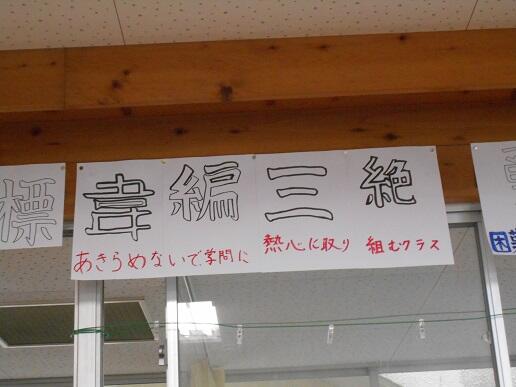 標
韋編三絶
あきらめないで、学問に熱心に取り組むクラス
困